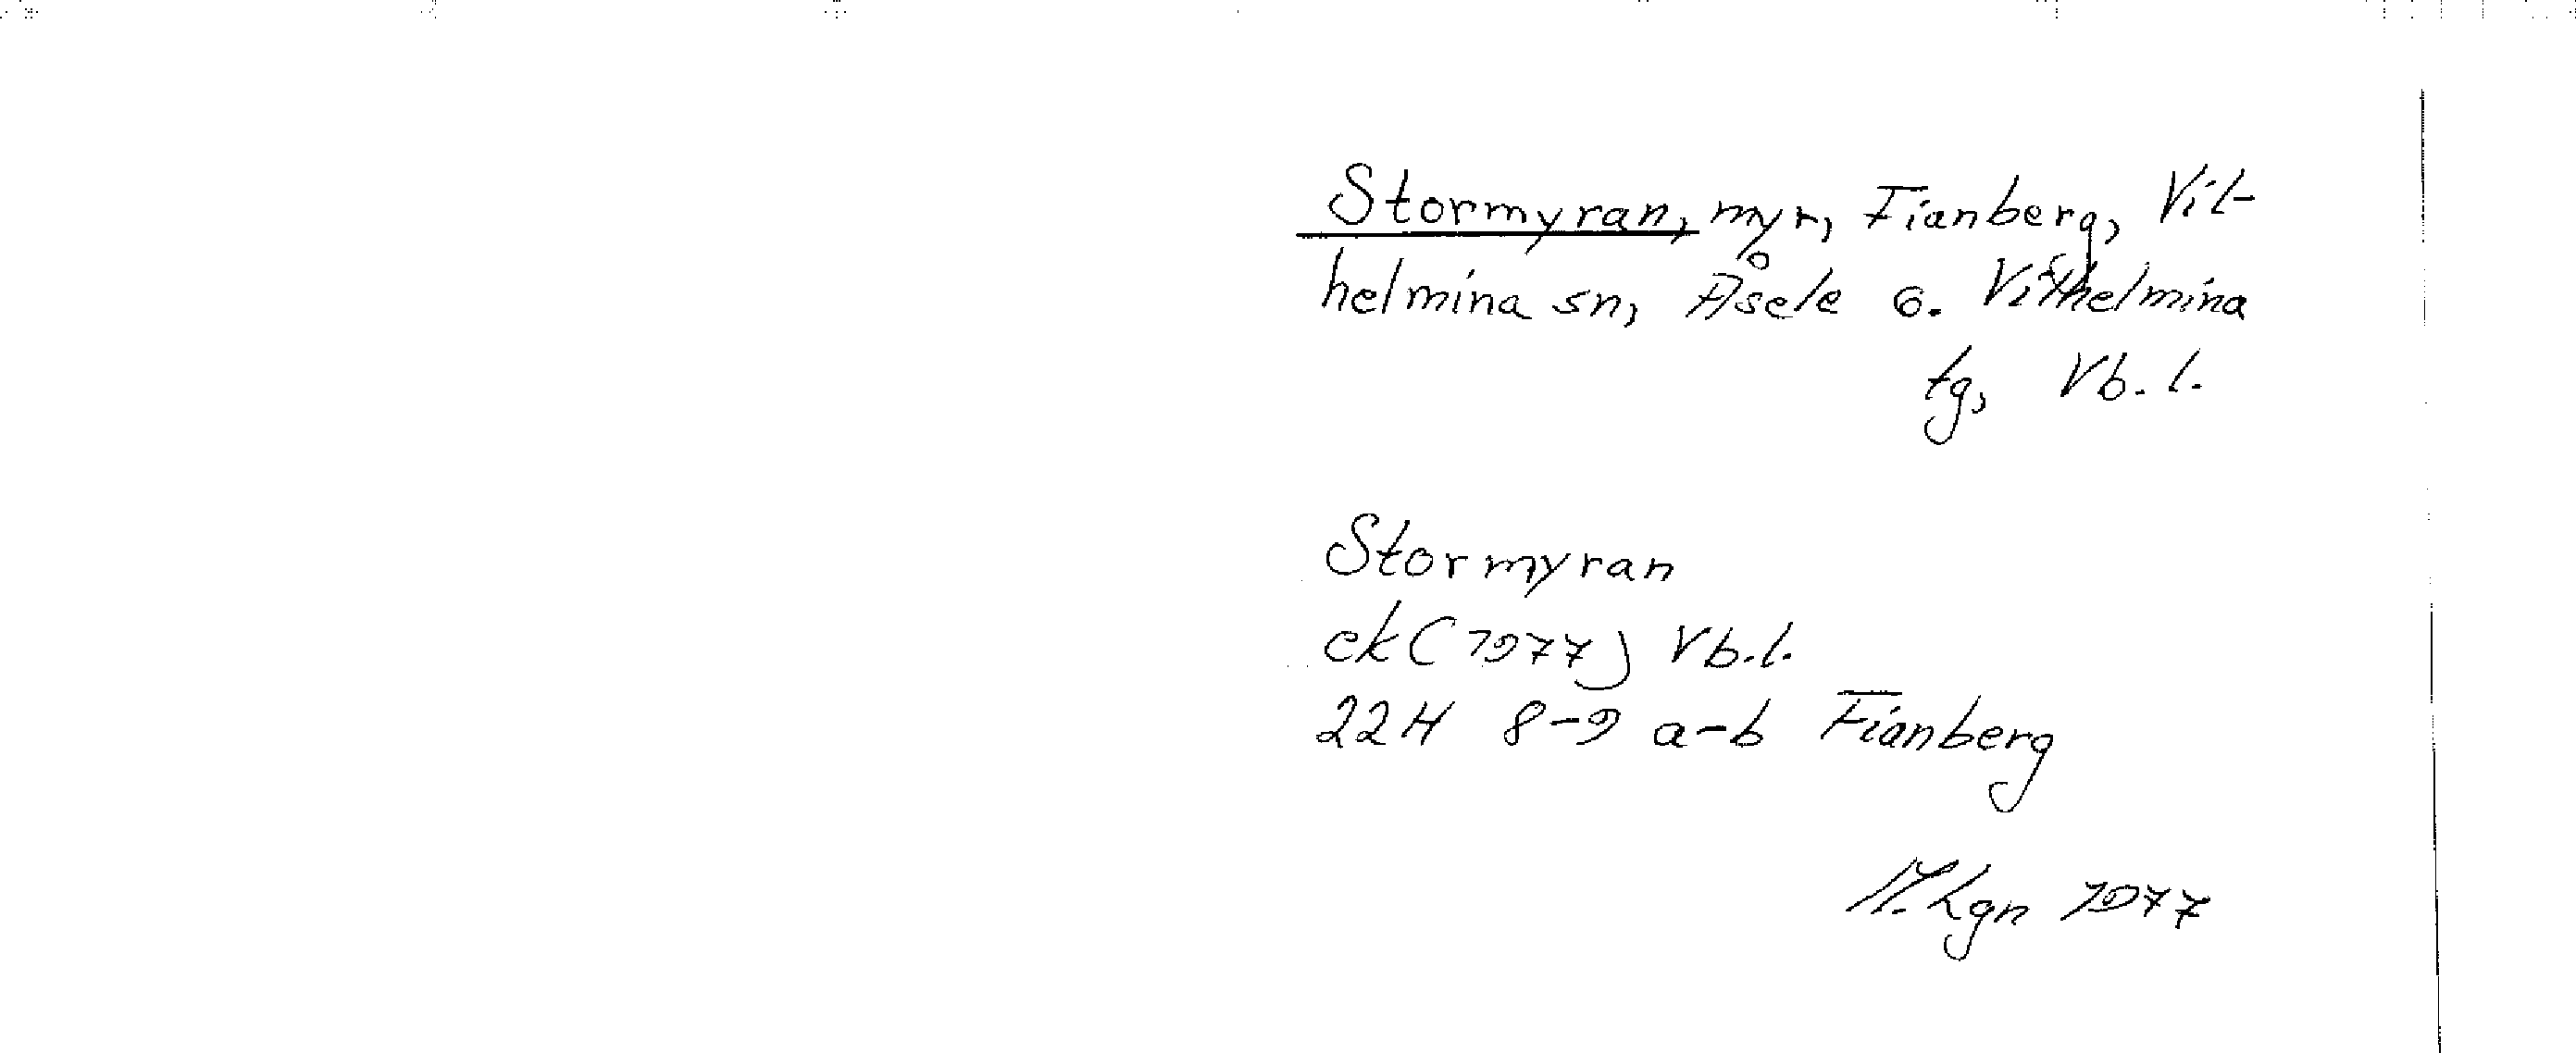 Stormyran, myr, Fianberg, Vil-
helmina sn, Åsele o. Vilhelmina
tg, Vb. l.
Stormyran
ek (1977) Vb.l.
22H 8-9 a-b Fianberg
M. Lgn 1977